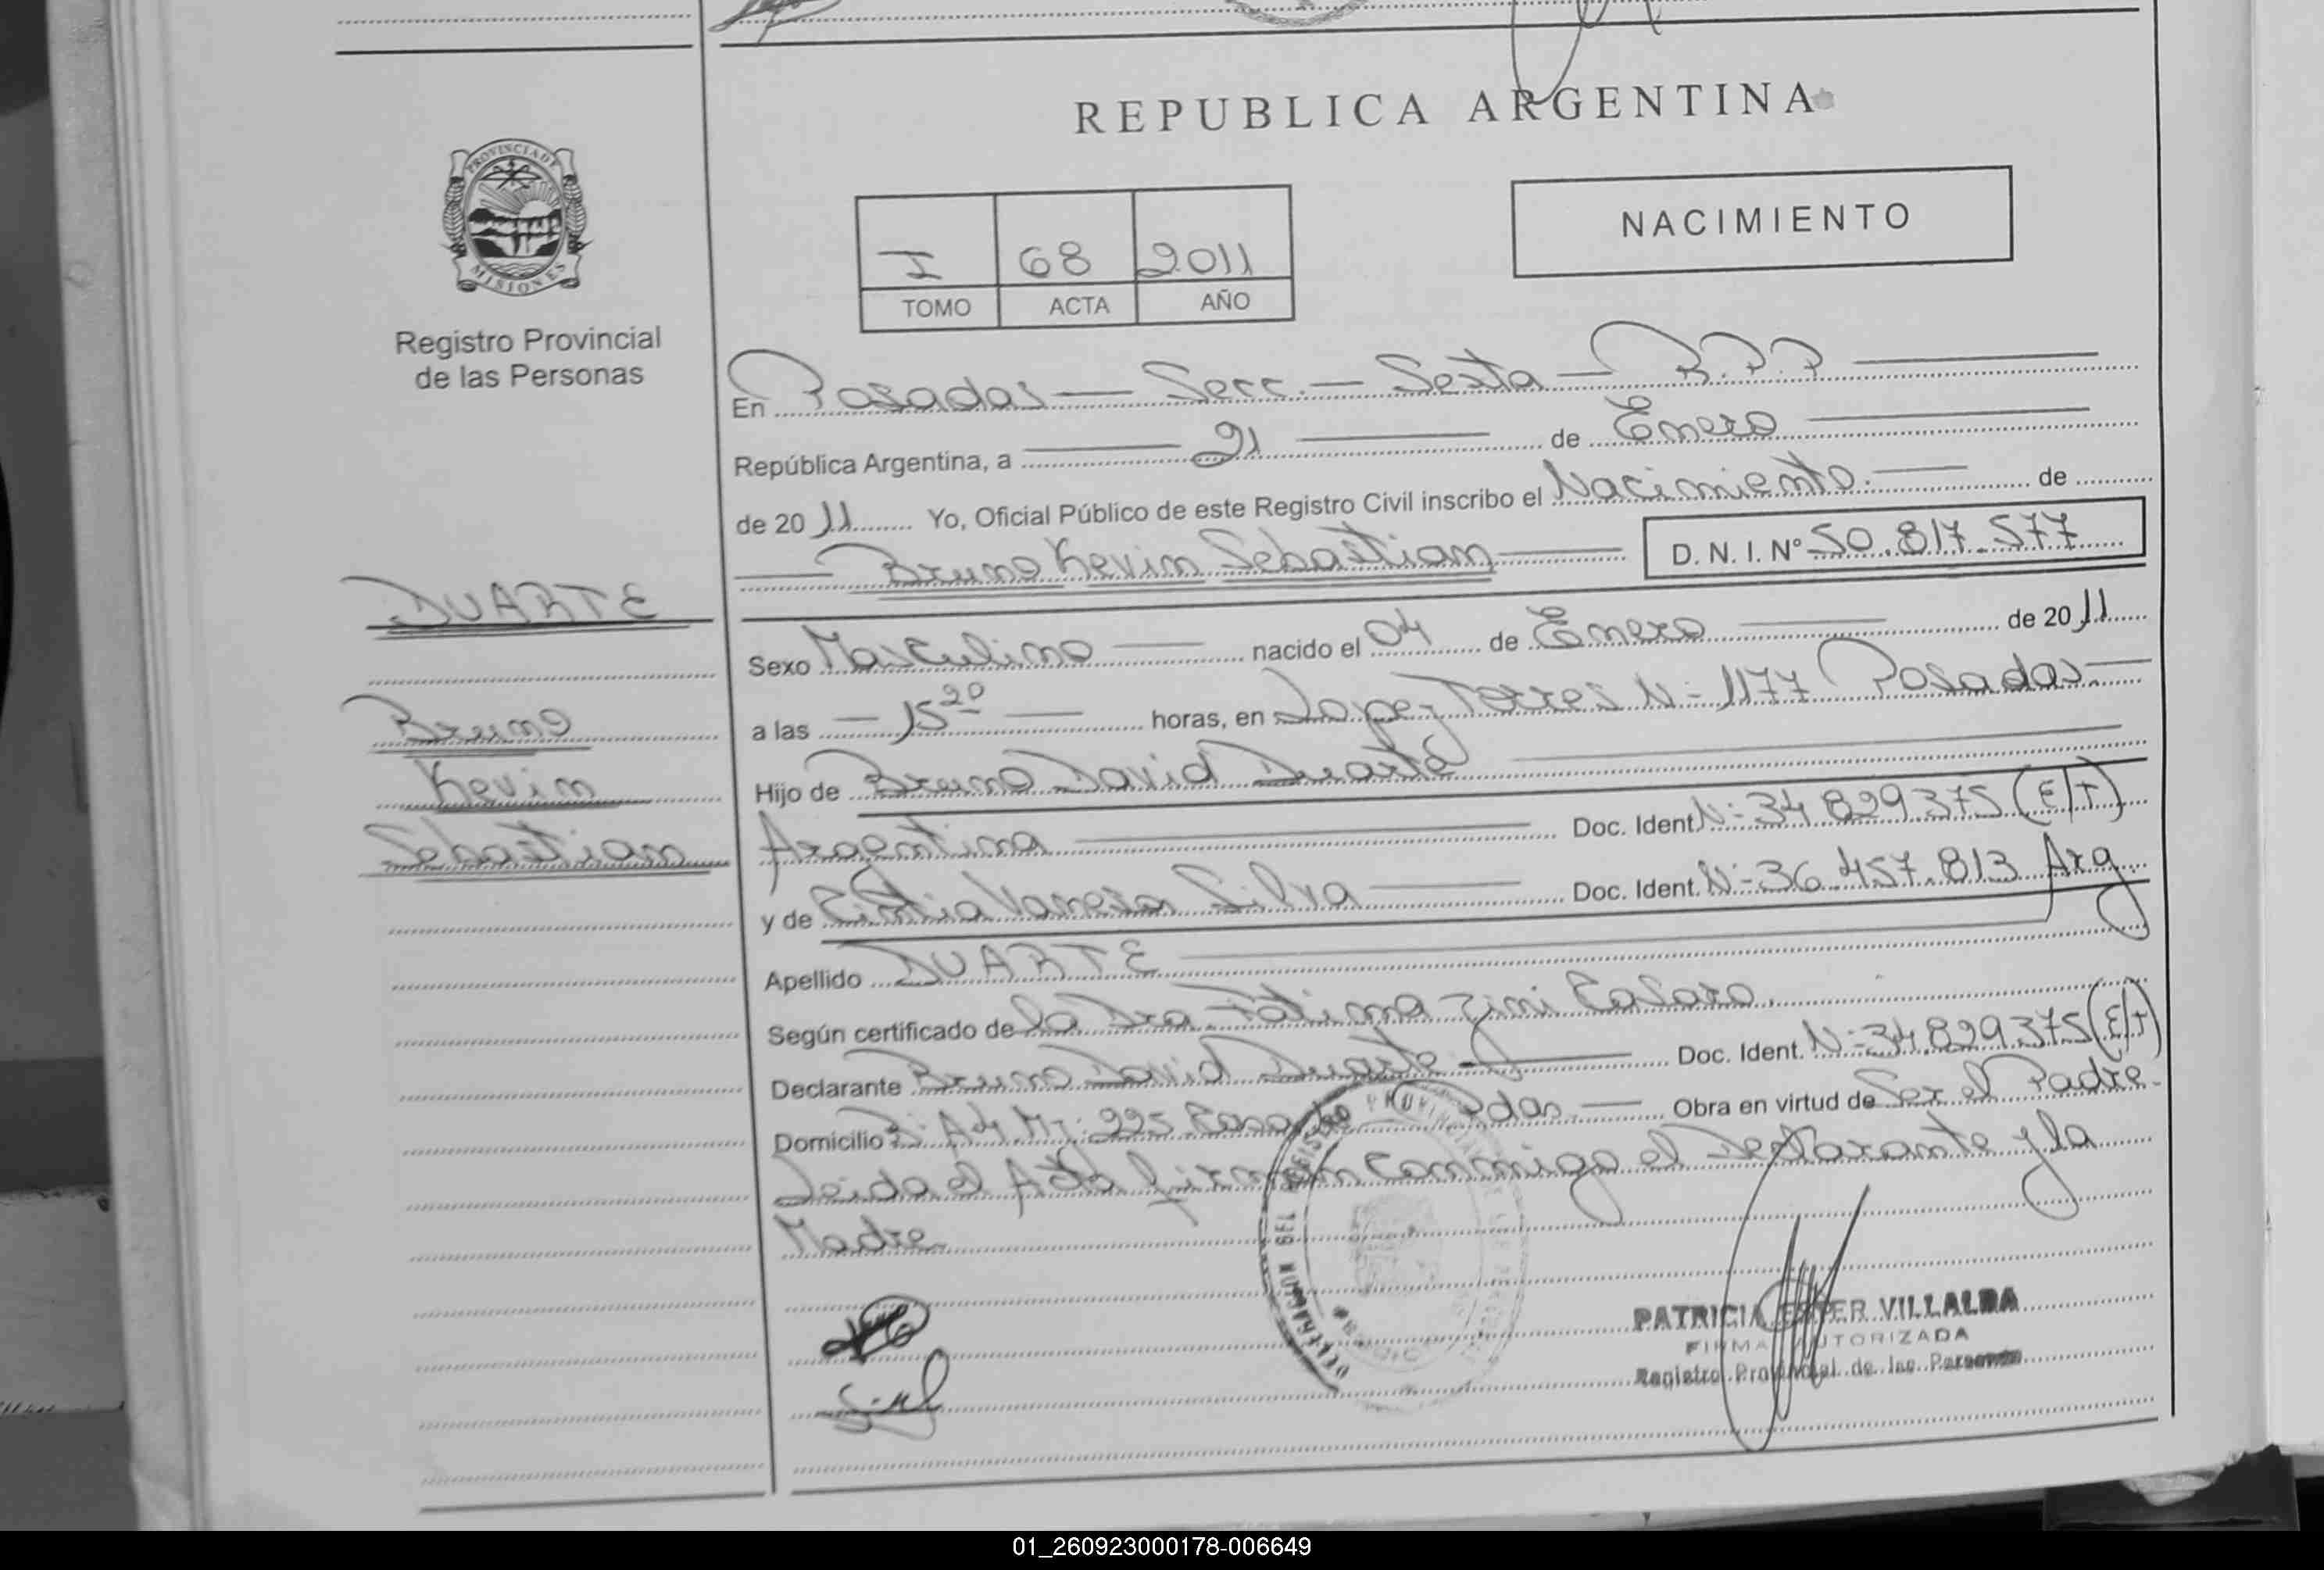 REPUBLICA ARGENTINA
PROVINCIA DE
MISIONES
Registro Provincial
de las Personas
NACIMIENTO
I 68 2011
TOMO ACTA AÑO
En Posadas — Secc. — Sexta — R.P.P
República Argentina, a 21 de Enero
de 2011 Yo, Oficial Público de este Registro Civil inscribo el Nacimiento. de
Bruno Kevin Sebastian D. N. I. N° 50.817.577
DUARTE
Bruno
Kevin
Sebastian
Sexo Masculino nacido el 04 de Enero de 2011
a las 15 20 horas, en Lopez Torres N- 1177 Posadas.
Hijo de Bruno David Duarte
Argentina Doc. Ident N- 34 829 375 (E/T)
y de Sintia Vanesa Silva Doc. Ident. N- 36.457.813 Arg
Apellido DUARTE
Según certificado de la Dra. Fátima
Declarante Bruno David Duarte Doc. Ident. N- 34.829375 (E/T)
Domicilio Pdas. Obra en virtud de Ser el Padre.
Leida el Acta firman conmigo el Declarante y la
Madre
PATRICIA ESTER VILLALBA
FIRMA AUTORIZADA
Registro Provincial de las Personas
01_260923000178-006649